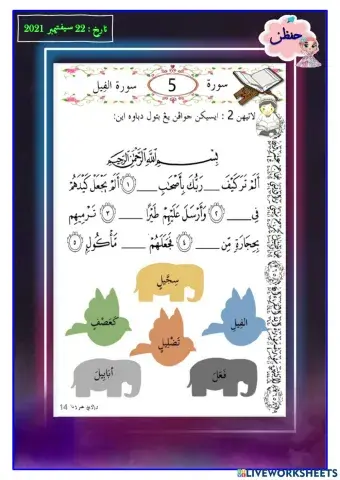 تاريخ : 22 سيفتيمبر 2021
حفظن
سورة 5 سورة الفيل
لاتيهن 2 : ايسيكن جواڤن يڠ بتول دباوه اين:
بِسْمِ اللَّهِ الرَّحْمَٰنِ الرَّحِيمِ
أَلَمْ تَرَ كَيْفَ ___ رَبُّكَ بِأَصْحَٰبِ ___ ١ أَلَمْ يَجْعَلْ كَيْدَهُمْ
فِى ___ ٢ وَأَرْسَلَ عَلَيْهِمْ طَيْرًا ___ ٣ تَرْمِيهِم
بِحِجَارَةٍ مِّن ___ ٤ فَجَعَلَهُمْ ___ مَّأْكُولٍۭ ٥
سِجِّيلٍ
كَعَصْفٍ
الفِيلِ
تَضْلِيلٍ
أَبَابِيلَ
فَعَلَ
14
LIVEWORKSHEETS